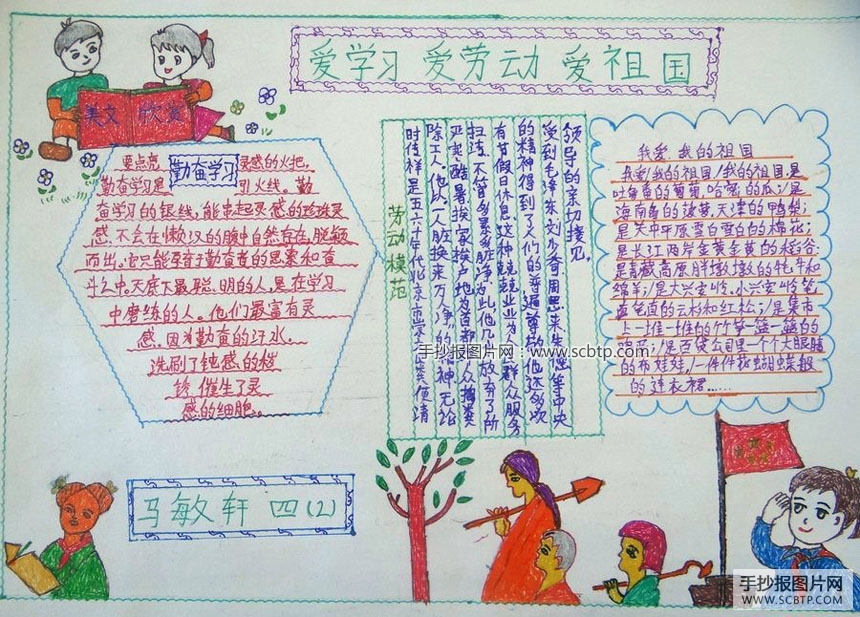 爱学习 爱劳动 爱祖国
美文 欣赏
勤奋学习
要点亮 灵感的火把,
勤奋学习是 引火线。勤
奋学习的银线,能串起灵感的珍珠灵
感,不会在懒汉的腹中自然存在,脱颖
而出。它只能孕育于勤奋者的思索和奋
斗之中,天底下最聪明的人,是在学习
中磨练的人。他们最富有灵
感。因为勤奋的汗水,
洗刷了钝感的桃
锈,催生了灵
感的细胞。
劳动模范
时传祥是五六十年代北京市崇文区粪便清
除工人。他以“一人脏换来万人净”的精神无论
严寒酷暑,挨家挨户地为首都群众掏粪
扫
有节假日休息这种兢兢业业为人民群众服务
的精神得到了人们的普遍尊敬他还多次
受到毛泽东刘少奇周恩来等中央
领导的亲切接见。
我爱我的祖国
我爱我的祖国,我的祖国,是
吐鲁番的葡萄,哈密的瓜;是
海南岛的菠萝,天津的鸭梨;
是关中平原雪白雪白的棉花;
是长江两岸金黄金黄的稻谷;
是青藏高原胖墩墩的牦牛和
绵羊;是大兴安岭、小兴安岭笔
直笔直的云杉和红松;是集市
上一堆一堆的竹笋一篮一篮的
是百货公司里一个个大眼睛
的布娃娃,一件件花蝴蝶般
的连衣裙……
马敏轩 四(2)
手抄报图片网:www.scbtp.com
手抄报图片网
WWW.SCBTP.COM